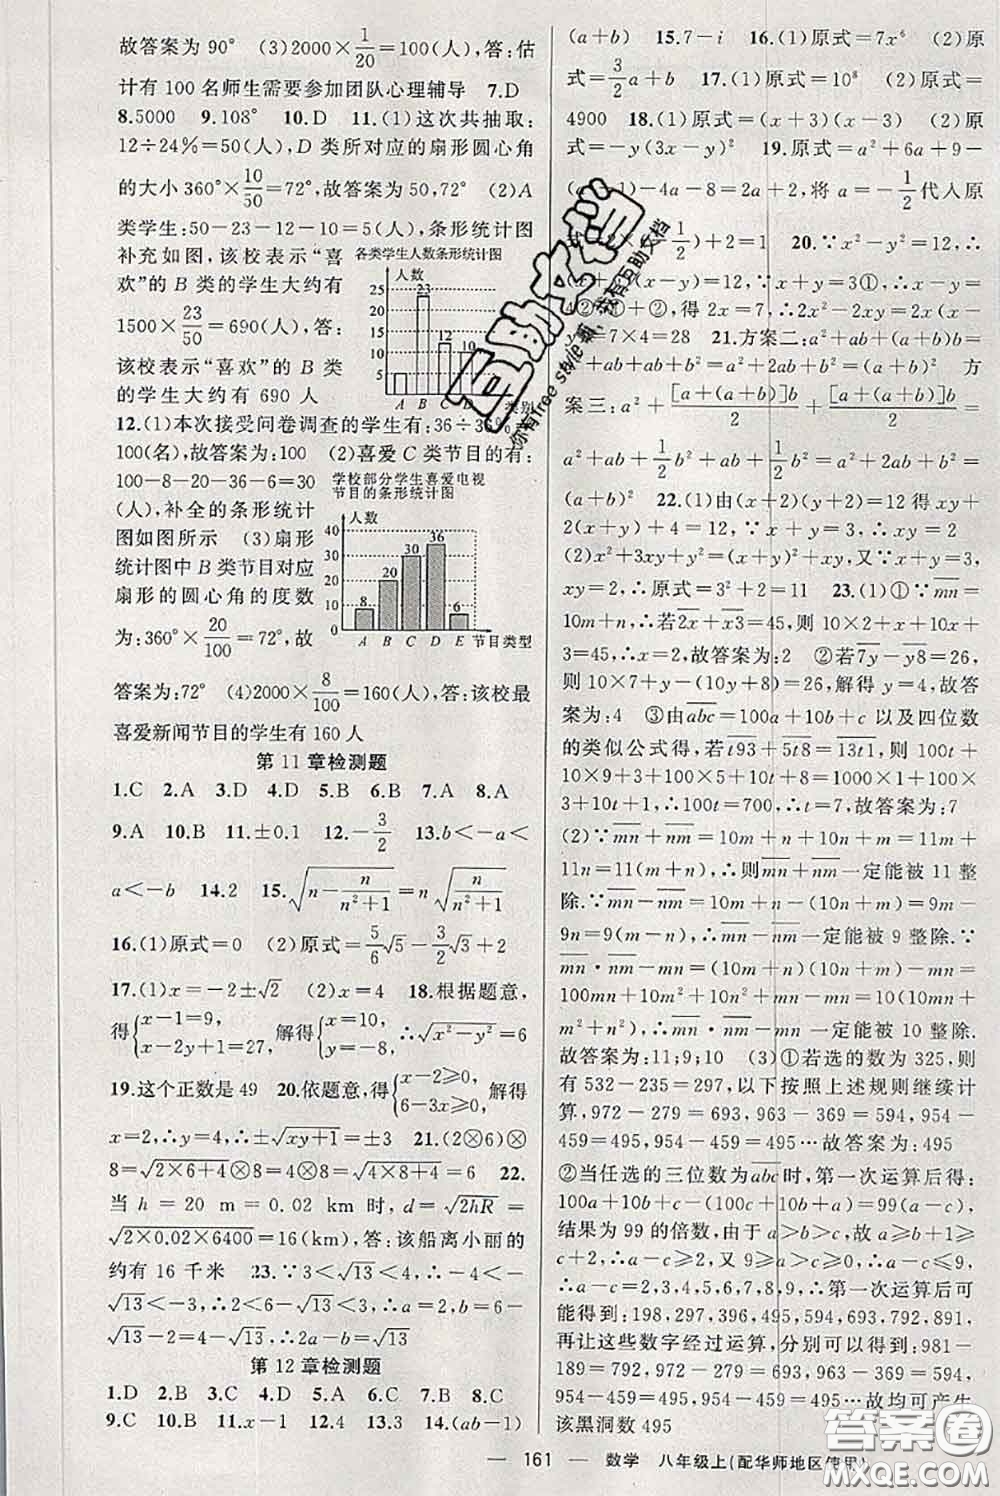 故答案为 90° (3)2000×1/20=100(人),答:估
计有 100 名师生需要参加团队心理辅导 7.D
8.5000 9.108° 10.D 11.(1)这次共抽取:
12÷24%=50(人),D 类所对应的扇形圆心角
的大小 360°×10/50=72°,故答案为 50,72° (2)A
类学生:50-23-12-10=5(人),条形统计图
补充如图,该校表示“喜
欢”的 B 类的学生大约有
1500×23/50=690(人),答:
该校表示“喜欢”的 B 类
的学生大约有 690 人
各类学生人数条形统计图
人数
25
20
15
10
5
23
12
10
A B C D 类别
12.(1)本次接受问卷调查的学生有:36÷36%=
100(名),故答案为:100 (2)喜爱 C 类节目的有:
100-8-20-36-6=30
(人),补全的条形统计
图如图所示 (3)扇形
统计图中 B 类节目对应
扇形的圆心角的度数
为:360°×20/100=72°,故
学校部分学生喜爱电视
节目的条形统计图
人数
40
30
20
10
0
8 20 30 36 6
A B C D E 节目类型
答案为:72° (4)2000×8/100=160(人),答:该校最
喜爱新闻节目的学生有 160 人
第 11 章检测题
1.C 2.A 3.D 4.D 5.B 6.B 7.A 8.A
9.A 10.B 11.±0.1 12.-3/2 13.b<-a<
a<-b 14.2 15.√(n-n/(n²+1))=n√(n/(n²+1))
16.(1)原式=0 (2)原式=5/6√5-3/2√3+2
17.(1)x=-2±√2 (2)x=4 18.根据题意,
得{x-1=9, x-2y+1=27. 解得{x=10, y=-8. ∴√(x²-y²)=6
19.这个正数是 49 20.依题意,得{x-2≥0, 6-3x≥0, 解得
x=2,∴y=4,∴±√(xy+1)=±3 21.(2⊗6)⊗
8=√(2×6+4)⊗8=4⊗8=√(4×8+4)=6 22.
当 h=20 m=0.02 km 时,d=√(2hR)=
√(2×0.02×6400)=16(km),答:该船离小丽的
约有 16 千米 23.∵3<√13<4,∴-4<
-√13<-3,∴2<6-√13<3,∴a=2,b=6-
√13-2=4-√13,∴2a-b=√13
第 12 章检测题
1.D 2.B 3.C 4.D 5.A 6.D 7.B 8.C
9.C 10.B 11.x-1 12.4 13.3 14.(ab-1)
(a+b) 15.7-i 16.(1)原式=7x⁶ (2)原
式=3/2a+b 17.(1)原式=10⁸ (2)原式=
4900 18.(1)原式=(x+3)(x-3) (2)原
式=-y(3x-y)² 19.原式=a²+6a+9-
-1)-4a-8=2a+2,将 a=-1/2代人原
)+2=1 20.∵x²-y²=12,∴
=12,∵x+y=3①,∴x-y=
4②,①+②,得 2x=7,∴2x²-2xy=2x(x-
=7×4=28 21.方案二:a²+ab+(a+b)b=
a²+ab+ab+b²=a²+2ab+b²=(a+b)² 方
案三:a²+[a+(a+b)]b/2+[a+(a+b)]b/2=
a²+ab+1/2b²+ab+1/2b²=a²+2ab+b²=
(a+b)² 22.(1)由(x+2)(y+2)=12 得 xy+
2(x+y)+4=12,∵x+y=3,∴xy=2
(2)x²+3xy+y²=(x+y)²+xy,又∵x+y=3,
xy=2,∴原式=3²+2=11 23.(1)①∵mn̅=
10m+n,∴若2x̅+x3̅=45,则 10×2+x+10x+
3=45,∴x=2,故答案为:2 ②若7y̅-y8̅=26,
则 10×7+y-(10y+8)=26,解得 y=4,故答
案为:4 ③由abc̅=100a+10b+c 以及四位数
的类似公式得,若t93̅+5t8̅=13t1̅,则 100t+
10×9+3+100×5+10t+8=1000×1+100×
3+10t+1,∴100t=700,∴t=7,故答案为:7
(2)∵mn̅+nm̅=10m+n+10n+m=11m+
11n=11(m+n),∴则mn̅+nm̅一定能被 11 整
除.∵mn̅-nm̅=10m+n-(10n+m)=9m-
9n=9(m-n),∴mn̅-nm̅一定能被 9 整除.∵
mn̅·nm̅-mn=(10m+n)(10n+m)-mn=
100mn+10m²+10n²+mn-mn=10(10mn+
m²+n²),∴mn̅·nm̅-mn 一定能被 10 整除.
故答案为:11;9;10 (3)①若选的数为 325,则
有 532-235=297,以下按照上述规则继续计
算,972-279=693,963-369=594,954-
459=495,954-459=495…故答案为:495
②当任选的三位数为abc̅时,第一次运算后得:
100a+10b+c-(100c+10b+a)=99(a-c),
结果为 99 的倍数,由于 a>b>c,故 a≥b+1≥
c+2,∴a-c≥2,又 9≥a>c≥0,∴a-c≤9,
∴a-c=2,3,4,5,6,7,8,9,∴第一次运算后可
能得到:198,297,396,495,594,693,792,891,
再让这些数字经过运算,分别可以得到:981-
189=792,972-279=693,963-369=594,
954-459=495,954-459=495…故均可产生
该黑洞数 495
— 161 — 数学 八年级上(配华师地区使用)
互助文档
你有free style,我有互助文档
答案圈
MXQE.COM